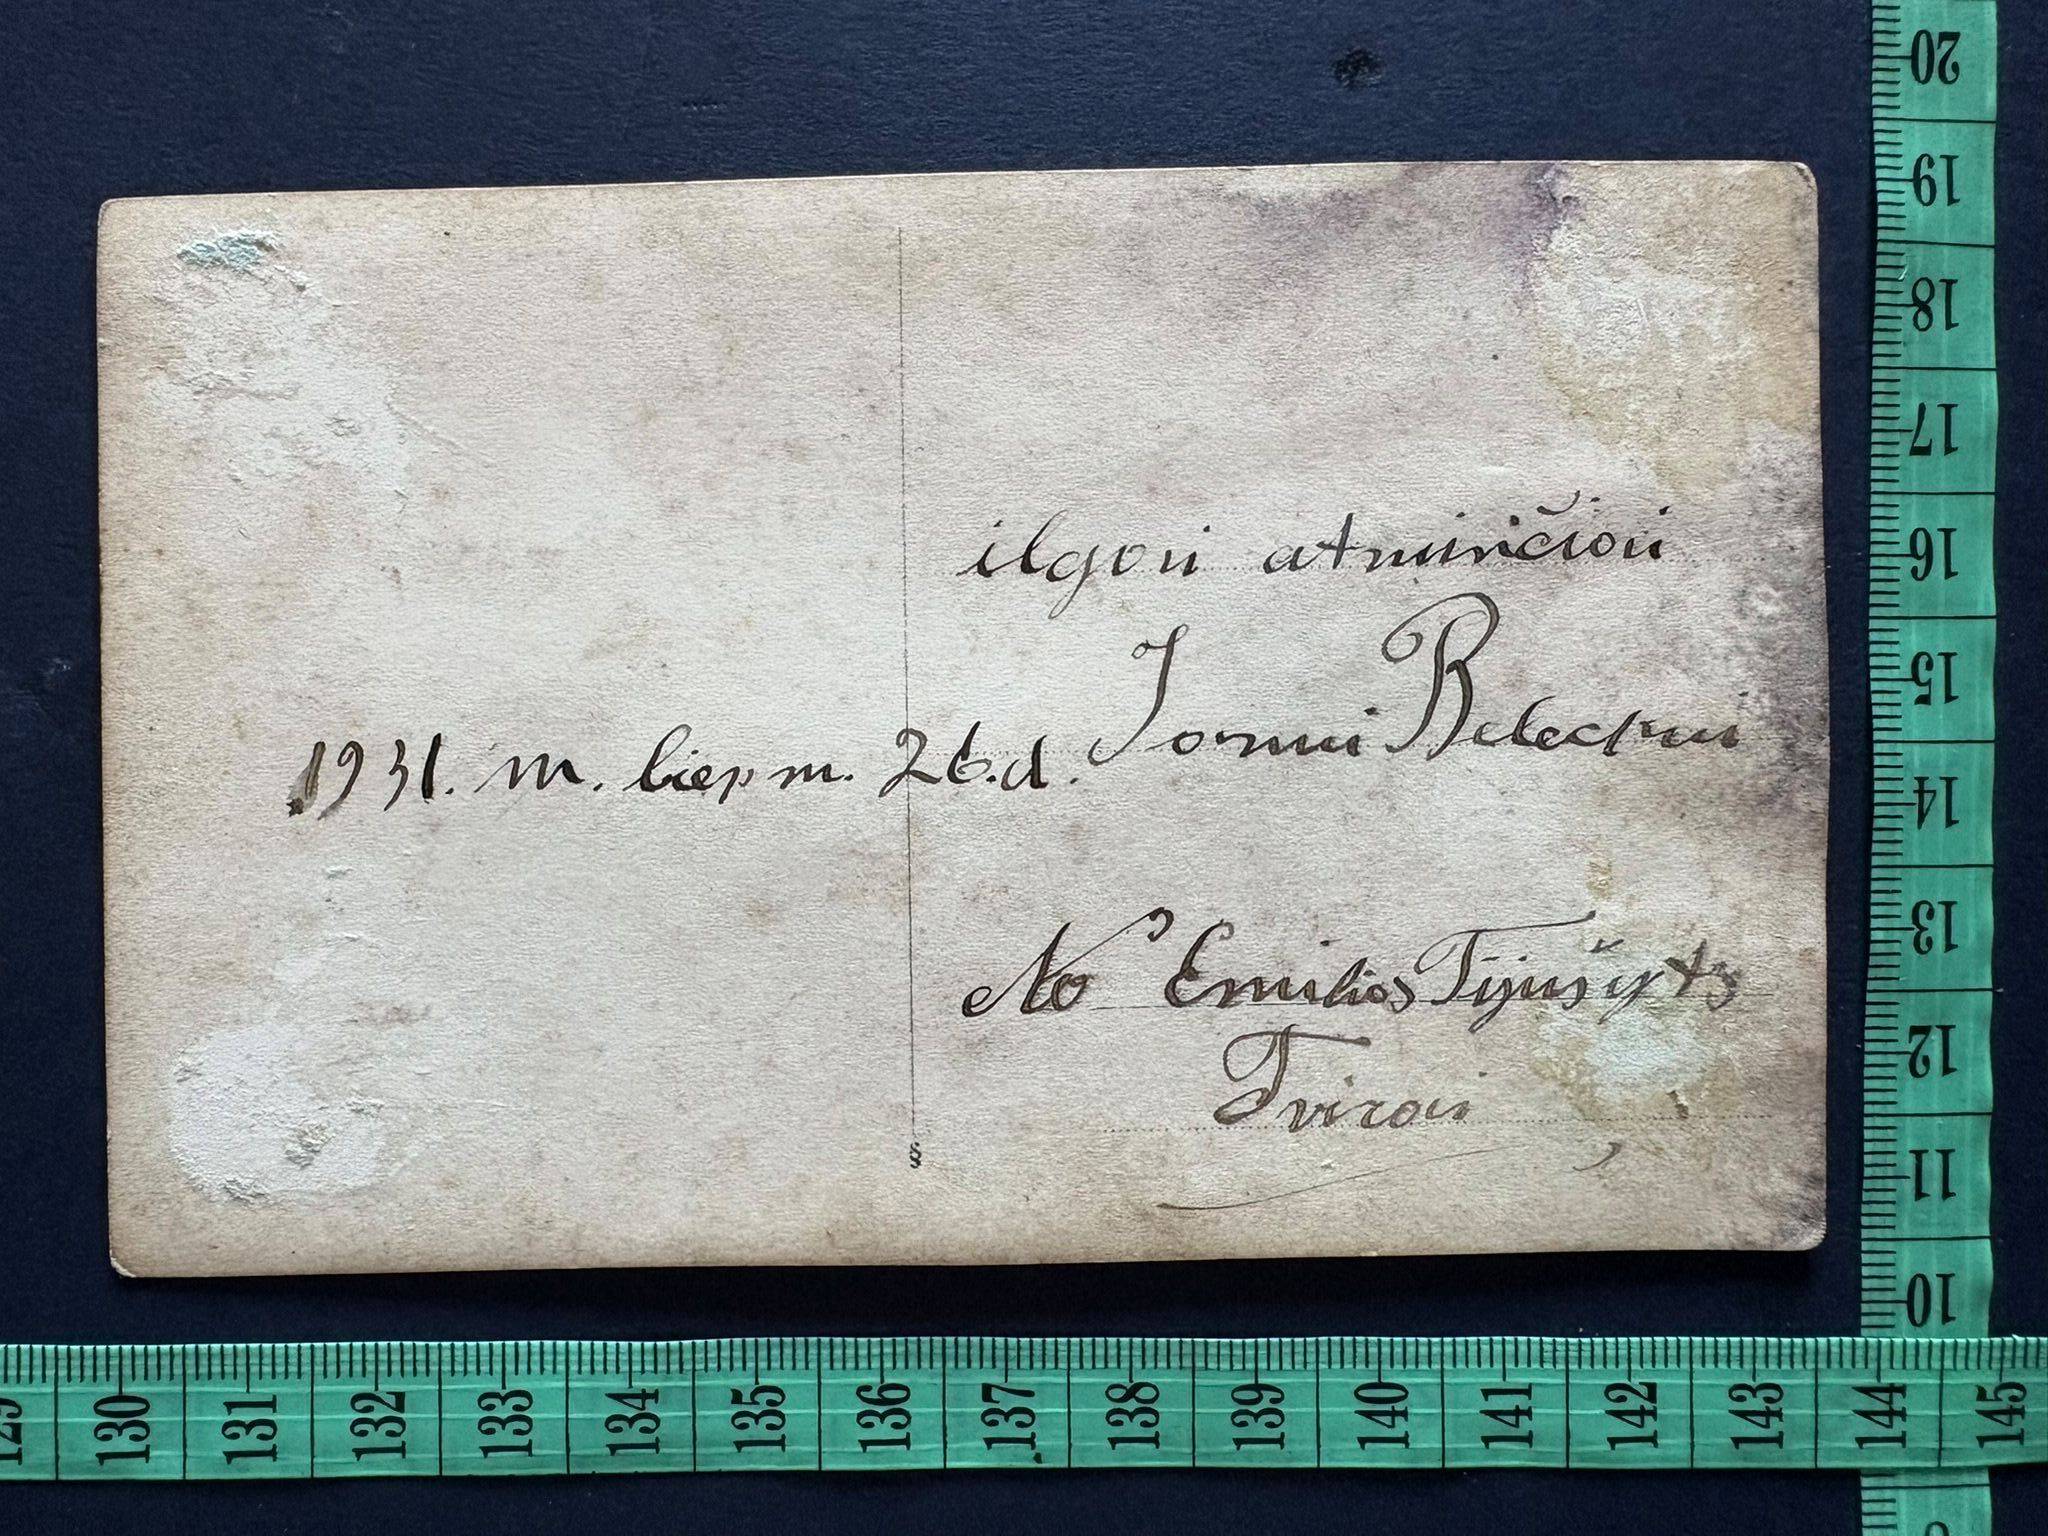 ilgai atminčiai
Jonui
1931. m. liep m. 26. d.
Nо Emilios
Tvirai
20
19
18
17
16
15
14
13
12
11
10
129 130 131 132 133 134 135 136 137 138 139 140 141 142 143 144 145